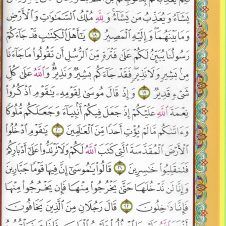 يَشَاءُ وَيُعَذِّبُ مَن يَشَاءُ وَلِلَّهِ مُلْكُ السَّمَاوَاتِ وَالْأَرْضِ
وَمَا بَيْنَهُمَا وَإِلَيْهِ الْمَصِيرُ ١٨ يَا أَهْلَ الْكِتَابِ قَدْ جَاءَكُمْ
رَسُولُنَا يُبَيِّنُ لَكُمْ عَلَىٰ فَتْرَةٍ مِّنَ الرُّسُلِ أَن تَقُولُوا مَا جَاءَنَا
مِن بَشِيرٍ وَلَا نَذِيرٍ فَقَدْ جَاءَكُم بَشِيرٌ وَنَذِيرٌ وَاللَّهُ عَلَىٰ كُلِّ
شَيْءٍ قَدِيرٌ ١٩ وَإِذْ قَالَ مُوسَىٰ لِقَوْمِهِ يَا قَوْمِ اذْكُرُوا
نِعْمَةَ اللَّهِ عَلَيْكُمْ إِذْ جَعَلَ فِيكُمْ أَنبِيَاءَ وَجَعَلَكُم مُّلُوكًا
وَآتَاكُم مَّا لَمْ يُؤْتِ أَحَدًا مِّنَ الْعَالَمِينَ ٢٠ يَا قَوْمِ ادْخُلُوا
الْأَرْضَ الْمُقَدَّسَةَ الَّتِي كَتَبَ اللَّهُ لَكُمْ وَلَا تَرْتَدُّوا عَلَىٰ أَدْبَارِكُمْ
فَتَنقَلِبُوا خَاسِرِينَ ٢١ قَالُوا يَا مُوسَىٰ إِنَّ فِيهَا قَوْمًا جَبَّارِينَ
وَإِنَّا لَن نَّدْخُلَهَا حَتَّىٰ يَخْرُجُوا مِنْهَا فَإِن يَخْرُجُوا مِنْهَا
فَإِنَّا دَاخِلُونَ ٢٢ قَالَ رَجُلَانِ مِنَ الَّذِينَ يَخَافُونَ